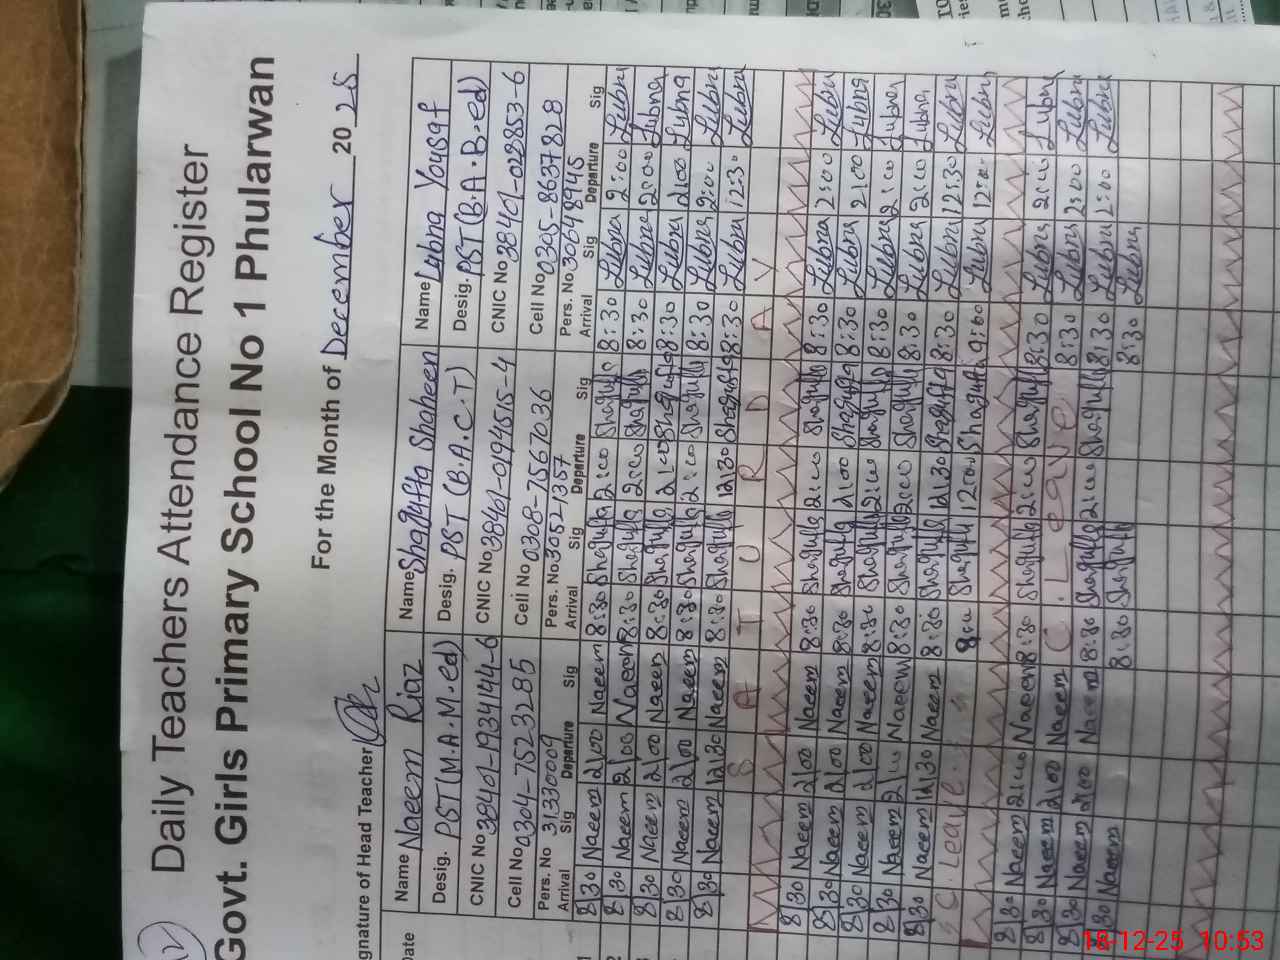 Daily Teachers Attendance Register
Govt. Girls Primary School No 1 Phularwan
For the Month of December 2025
gnature of Head Teacher
Name Naeem Riaz Name Shagufta Shaheen Name Lubna Yousaf
Desig. PST (M.A.M.ed) Desig. PST (B.A.C.T) Desig. PST (B.A.B.ed)
CNIC No 38401-1934144-6 CNIC No 38401-0194515-4 CNIC No 38401-028853-6
Cell No 0304-7523285 Cell No 0308-7567036 Cell No 0305-8637828
Pers. No 31330009 Pers. No 30521357 Pers. No 30648945
ate Arrival Sig Departure Sig Arrival Sig Departure Sig Arrival Sig Departure Sig
1 8:30 Naeem 2:00 Naeem 8:30 Shagufta 2:00 Shagufta 8:30 Lubna 2:00 Lubna
2 8:30 Naeem 2:00 Naeem 8:30 Shagufta 2:00 Shagufta 8:30 Lubna 2:00 Lubna
8:30 Naeem 2:00 Naeem 8:30 Shagufta 2:00 Shagufta 8:30 Lubna 2:00 Lubna
8:30 Naeem 2:00 Naeem 8:30 Shagufta 2:00 Shagufta 8:30 Lubna 2:00 Lubna
8:30 Naeem 12:30 Naeem 8:30 Shagufta 12:30 Shagufta 8:30 Lubna 12:30 Lubna
S A T U R D A Y
8:30 Naeem 2:00 Naeem 8:30 Shagufta 2:00 Shagufta 8:30 Lubna 2:00 Lubna
8:30 Naeem 2:00 Naeem 8:30 Shagufta 2:00 Shagufta 8:30 Lubna 2:00 Lubna
8:30 Naeem 2:00 Naeem 8:30 Shagufta 2:00 Shagufta 8:30 Lubna 2:00 Lubna
8:30 Naeem 2:00 Naeem 8:30 Shagufta 2:00 Shagufta 8:30 Lubna 2:00 Lubna
8:30 Naeem 12:30 Naeem 8:30 Shagufta 12:30 Shagufta 8:30 Lubna 12:30 Lubna
C. Leave Shagufta 12:00 Shagufta 9:00 Lubna 12:00 Lubna
8:30 Naeem 2:00 Naeem 8:30 Shagufta 2:00 Shagufta 8:30 Lubna 2:00 Lubna
8:30 Naeem 2:00 Naeem C. Leave 8:30 Lubna 2:00 Lubna
8:30 Naeem 2:00 Naeem 8:30 Shagufta 2:00 Shagufta 8:30 Lubna 2:00 Lubna
8:30 Naeem 8:30 Shagufta 8:30 Lubna
18-12-25 10:53